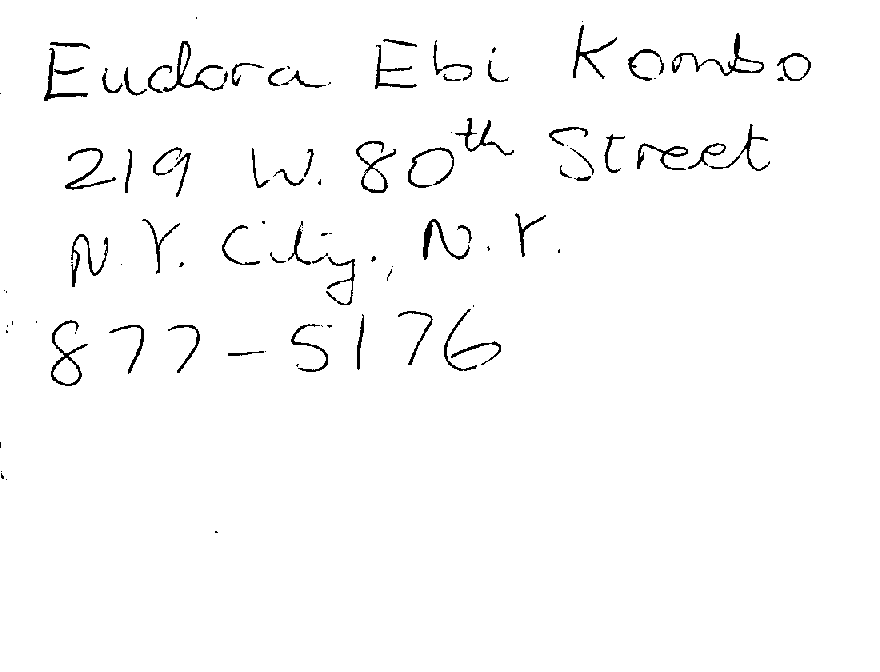 Eudora Ebi Kombo
219 W. 80th Street
N.Y. City., N.Y.
877-5176